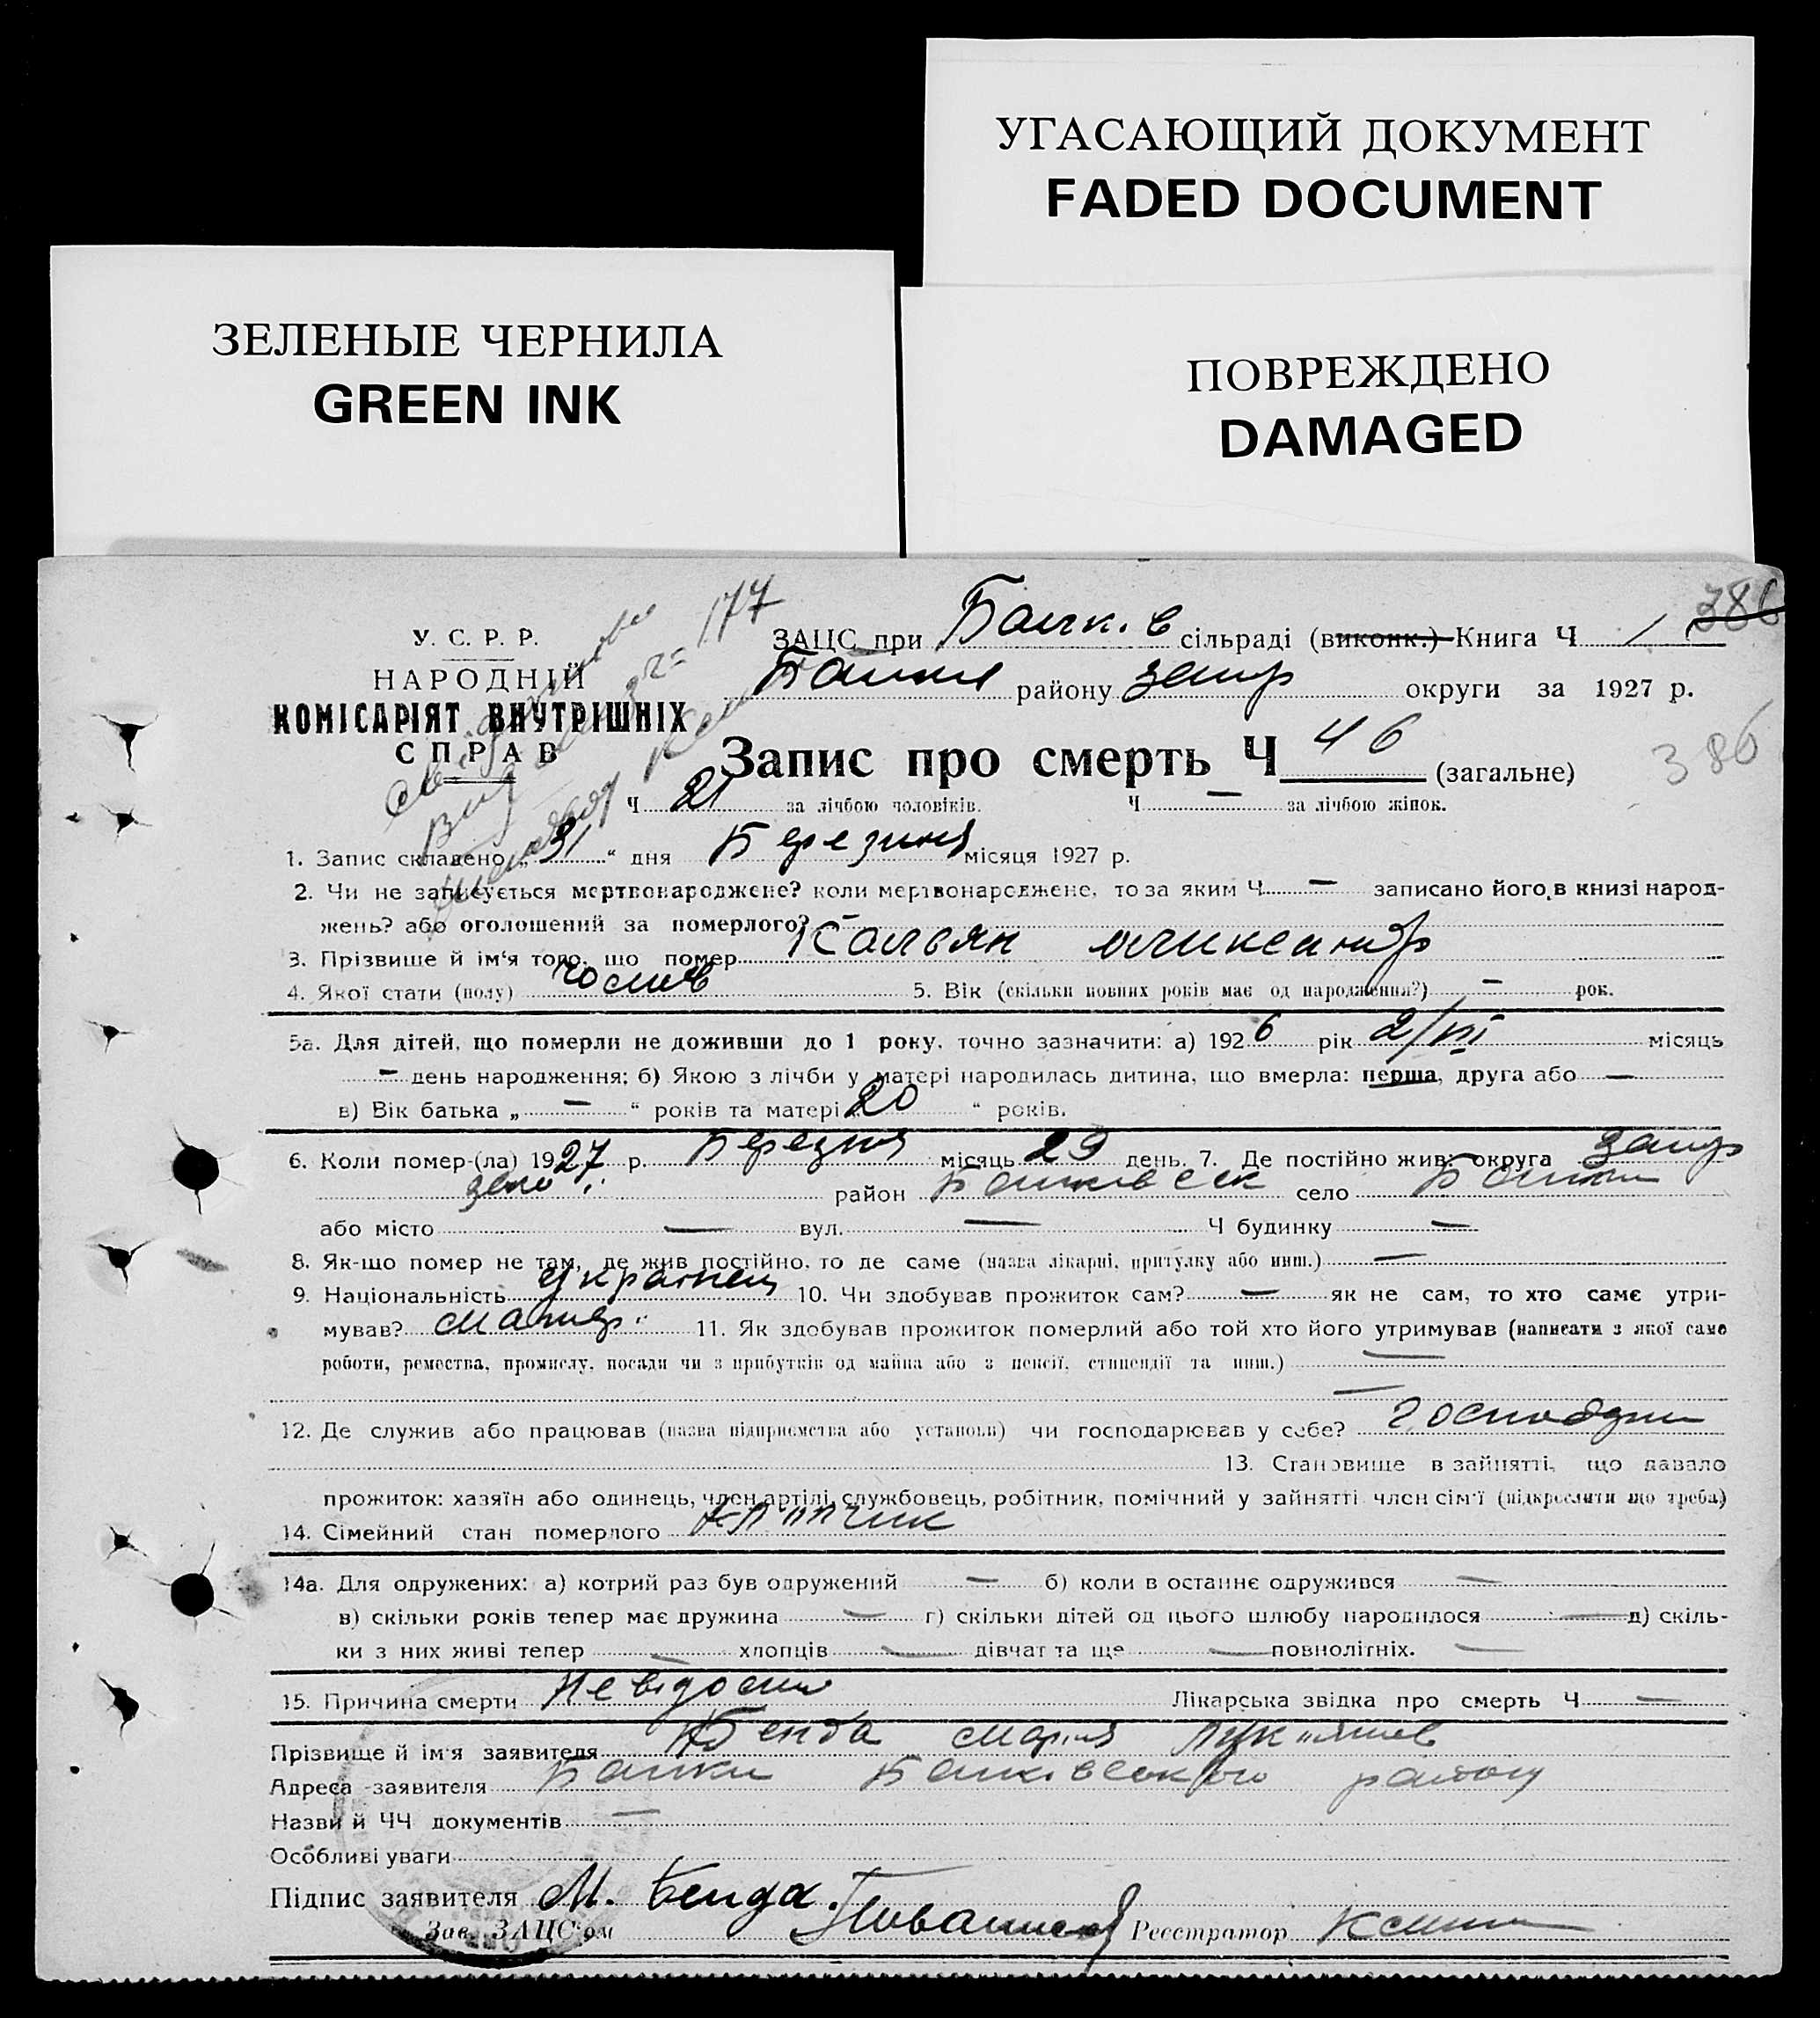 УГАСАЮЩИЙ ДОКУМЕНТ
FADED DOCUMENT
ЗЕЛЕНЫЕ ЧЕРНИЛА
GREEN INK
ПОВРЕЖДЕНО
DAMAGED
386
177
У. С. Р. Р.
НАРОДНІЙ
КОМІСАРІЯТ ВНУТРІШНІХ
СПРАВ
ЗАЦС при сільраді (виконк.) Книга Ч 1
району Запор округи за 1927 р.
386
Запис про смерть Ч 46 (загальне)
Ч 21 за лічбою чоловіків. Ч — за лічбою жінок.
1. Запис складено „31“ дня Березня місяця 1927 р.
2. Чи не записується мертвонароджене? коли мертвонароджене, то за яким Ч — записано його в книзі народ-
жень? або оголошений за померлого? —
3. Прізвище й ім'я того, що помер
4. Якої стати (полу) 5. Вік (скільки повних років має од народження?) — рок.
5а. Для дітей, що померли не доживши до 1 року, точно зазначити: а) 1926 рік 2/VII місяць
— день народження; б) Якою з лічби у матері народилась дитина, що вмерла: перша, друга або —
в) Вік батька „ — “ років та матері „ 20 “ років.
6. Коли помер-(ла) 1927 р. Березня місяць 29 день. 7. Де постійно жив: округа Запор
район село
або місто — вул. — Ч будинку —
8. Як-що помер не там, де жив постійно, то де саме (назва лікарні, притулку або инш.) —
9. Національність Украінец 10. Чи здобував прожиток сам? — як не сам, то хто саме утри-
мував? матер. 11. Як здобував прожиток померлий або той хто його утримував (написати з якої саме
роботи, ремества, промислу, посади чи з прибутків од майна або з пенсії, стипендії та инш.) —
—
12. Де служив або працював (назва підприємства або установи) чи господарював у себе?
13. Становище в зайнятті, що давало
прожиток: хазяїн або одинець, член артілі, службовець, робітник, помічний у зайнятті член сім'ї (підкреслити що треба)
14. Сімейний стан померлого
14а. Для одружених: а) котрий раз був одружений — б) коли в останнє одружився —
в) скільки років тепер має дружина — г) скільки дітей од цього шлюбу народилося — д) скіль-
ки з них живі тепер — хлопців — дівчат та ще — повнолітніх. —
15. Причина смерти Невідома Лікарська звідка про смерть Ч —
Прізвище й ім'я заявителя Бенда Мария
Адреса заявителя району
Назви й ЧЧ документів —
Особливі уваги
Підпис заявителя М. Бенда.
Зав. ЗАЦС'ом Реєстратор